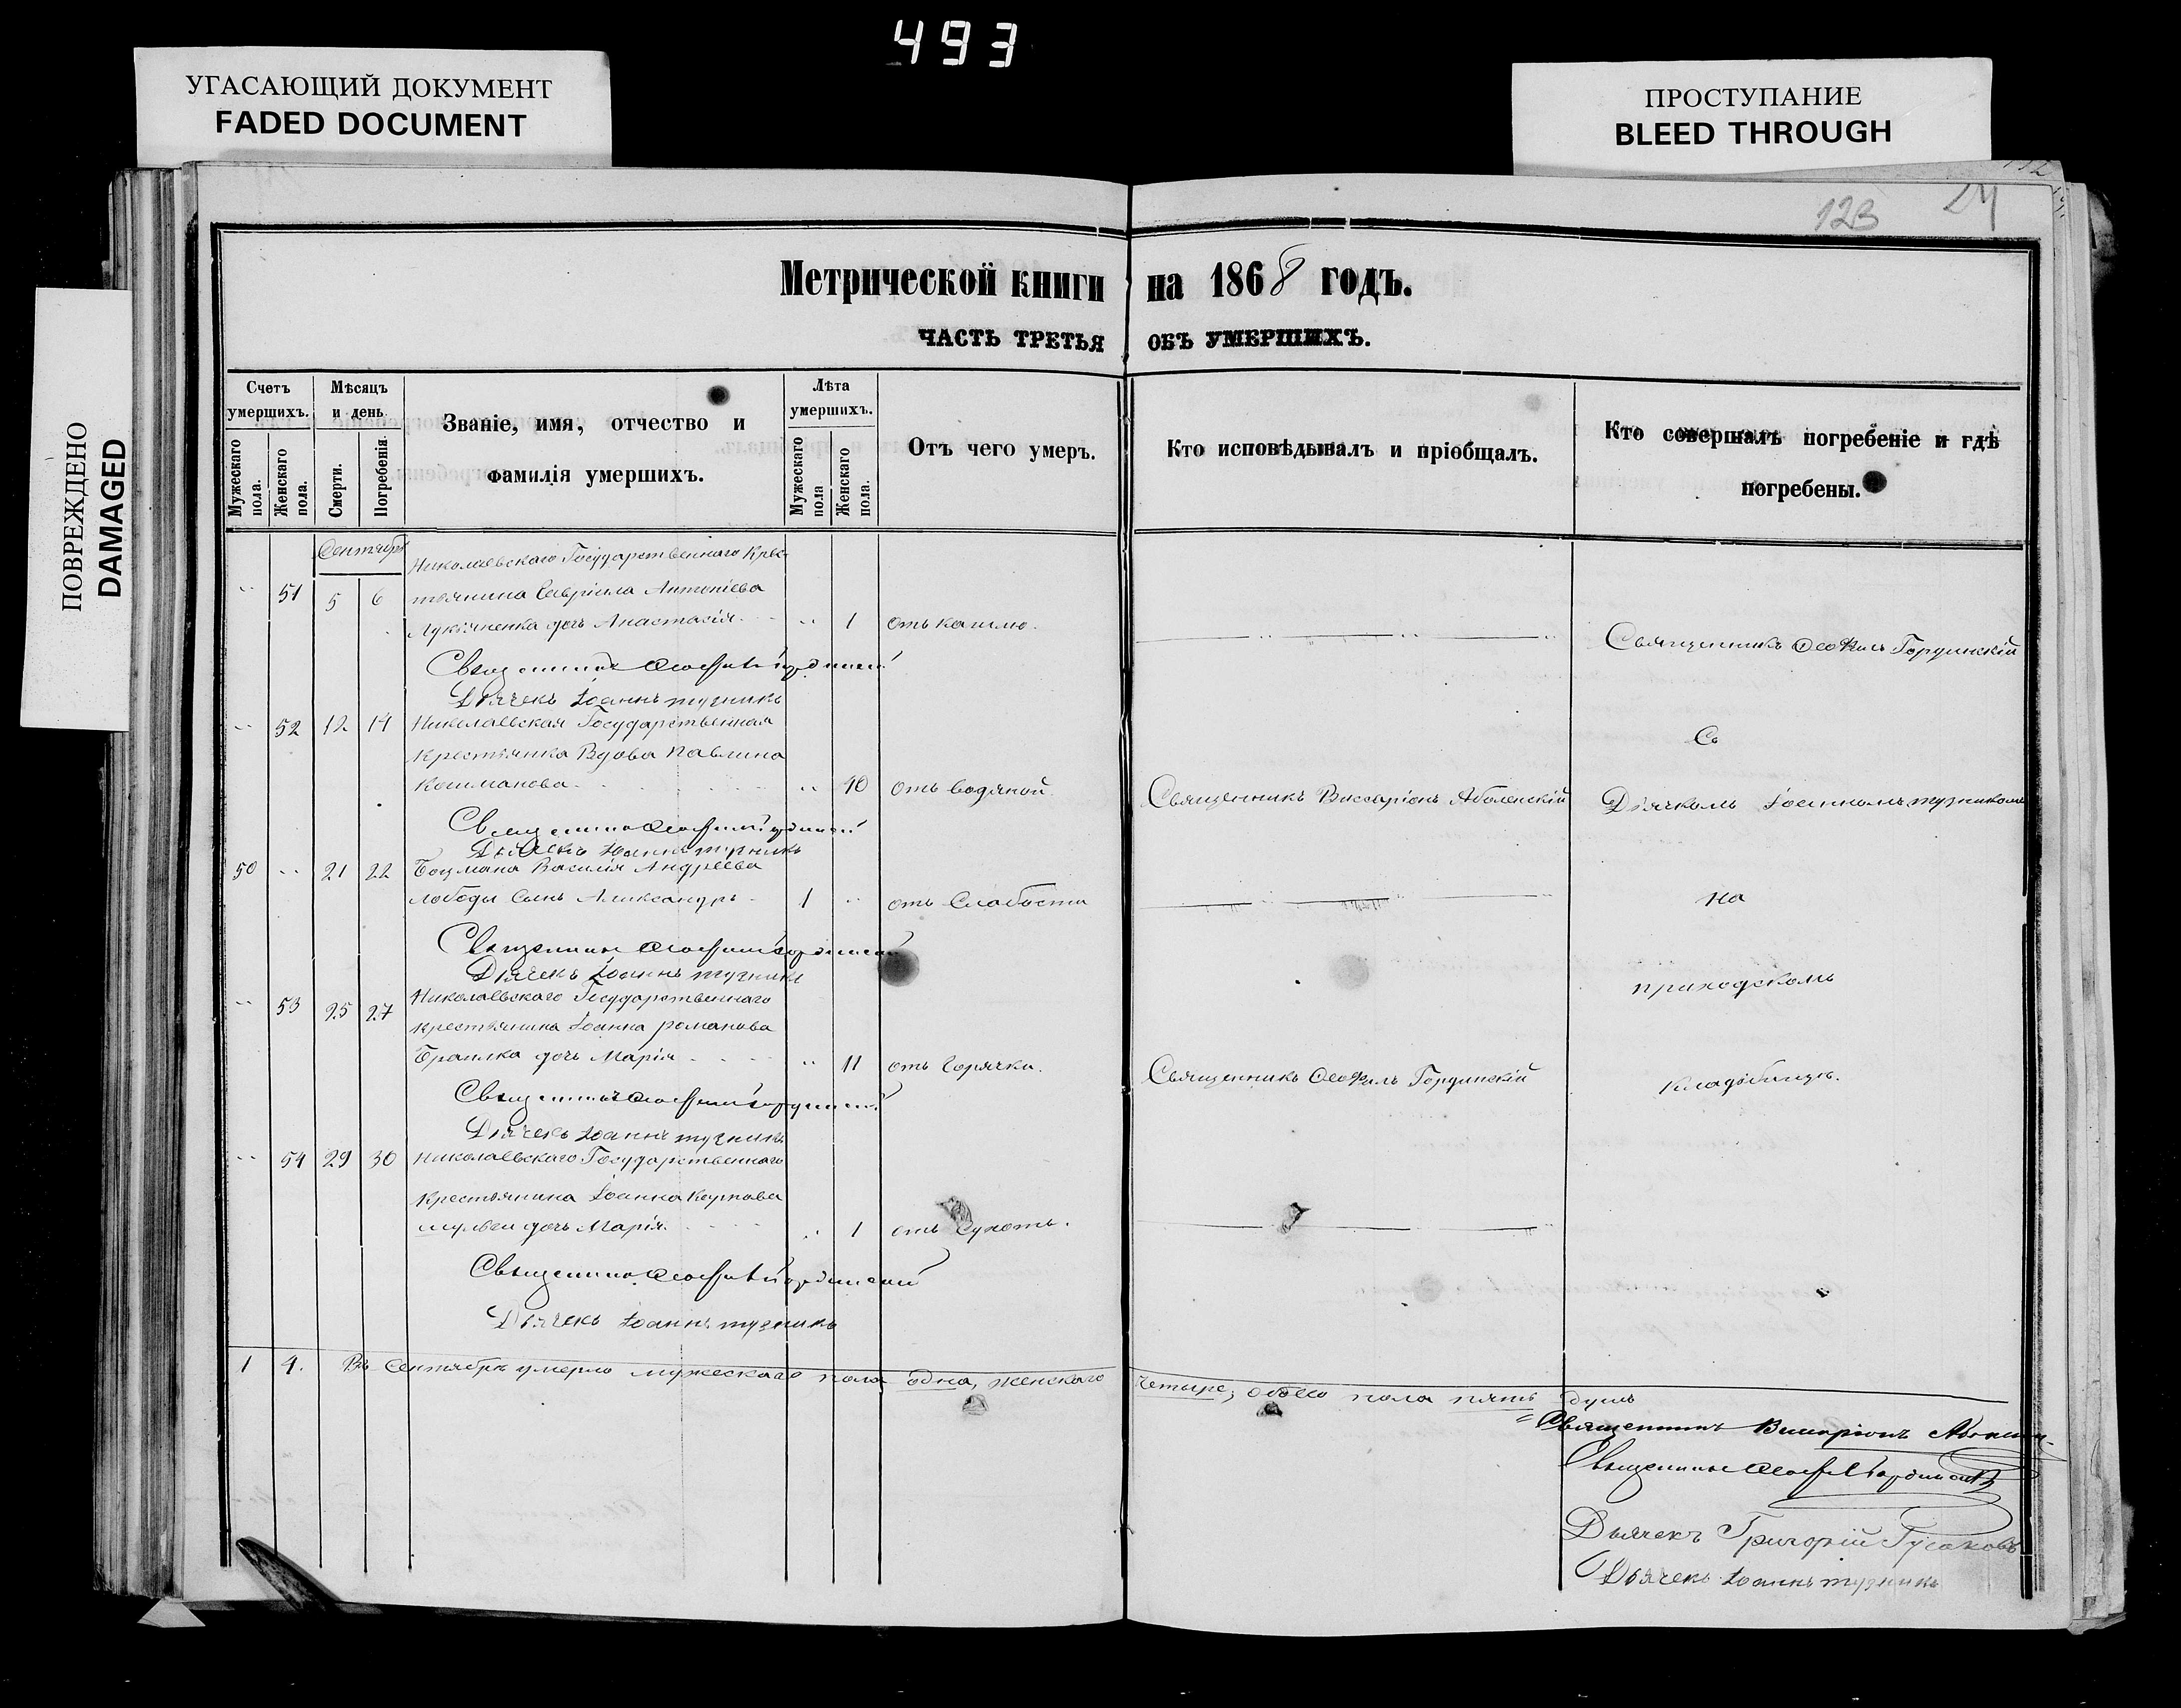 493
УГАСАЮЩИЙ ДОКУМЕНТ
FADED DOCUMENT
ПРОСТУПАНИЕ
BLEED THROUGH
ПОВРЕЖДЕНО
DAMAGED
123
24
Метрической книги на 1868 годъ.
ЧАСТЬ ТРЕТЬЯ ОБЪ УМЕРШИХЪ.
Счетъ умершихъ.
Мужескаго пола.
Женскаго пола.
Мѣсяцъ и день
Смерти.
Погребенія.
Званіе, имя, отчество и фамилія умершихъ.
Лѣта умершихъ.
Мужескаго пола
Женскаго пола.
Отъ чего умеръ.
Кто исповѣдывалъ и пріобщалъ.
Кто совершалъ погребеніе и гдѣ погребены.
Сентябрь
Николаевскаго Государственнаго Крес-
51 5 6 тьянина Гавріила Антоніева
Лукьяненка дочь Анастасія 1 отъ кашлю.
Священникъ Гординскій
Священникъ
Дьячекъ Іоаннъ
52 12 14 Николаевская Государственная
Крестьянка Вдова Павлина
Кошманова 40 отъ водяной. Священникъ Виссаріонъ Аболенскій
Съ
Дьячкомъ Іоанномъ
Священникъ
Дьячекъ Іоаннъ
50 21 22 Боцмана Василія Андреева
лободы Сынъ Александръ 1 отъ Слабости
на
Священникъ
Дьячекъ Іоаннъ
приходскомъ
53 25 27 Николаевскаго Государственнаго
крестьянина Іоанна романова
Браилка дочь Марія 11 отъ Горячки. Священникъ Гординскій
кладбищѣ.
Священникъ
Дьячекъ Іоаннъ
54 29 30 Николаевскаго Государственнаго
Крестьянина Іоанна
дочь Марія 1 отъ Сухотъ.
Священникъ
Дьячекъ Іоаннъ
1 4. Въ Сентябрѣ умерло мужескаго пола одна, женскаго четыре, обоего пола пять душъ
Священникъ Виссаріонъ
Священникъ
Дьячекъ Григорій Гусаковъ
Дьячекъ Іоаннъ